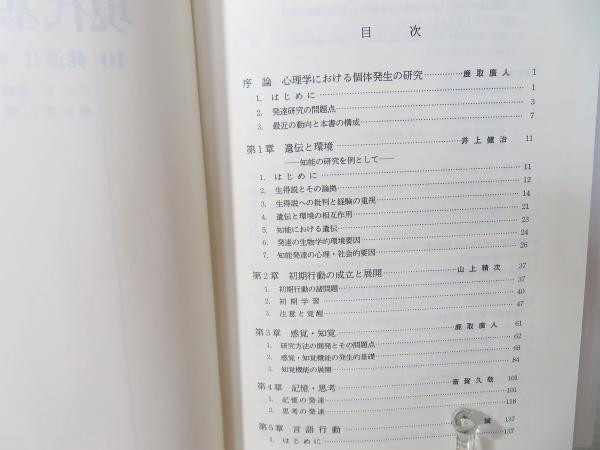 現代基
10 発達II
目 次
序 論 心理学における個体発生の研究……………鹿取廣人 1
1. はじめに…… 1
2. 発達研究の問題点…… 3
3. 最近の動向と本書の構成…… 7
第1章 遺伝と環境……井上健治 11
――知能の研究を例として――
1. はじめに…… 11
2. 生得説とその論拠…… 12
3. 生得説への批判と経験の重視…… 14
4. 遺伝と環境の相互作用…… 21
5. 知能における遺伝…… 23
6. 発達の生物学的環境要因…… 24
7. 知能発達の心理・社会的要因…… 26
第2章 初期行動の成立と展開……山上精次 37
1. 初期行動の諸問題…… 37
2. 初期学習…… 40
3. 注意と覚醒…… 47
第3章 感覚・知覚……鹿取廣人 61
1. 研究方法の開発とその問題点…… 62
2. 感覚・知覚機能の発生的基礎…… 68
3. 知覚機能の展開…… 84
第4章 記憶・思考……斎賀久敬 101
1. 記憶の発達…… 101
2. 思考の発達…… 118
第5章 言語行動…… 誠 137
1. はじめに…… 137